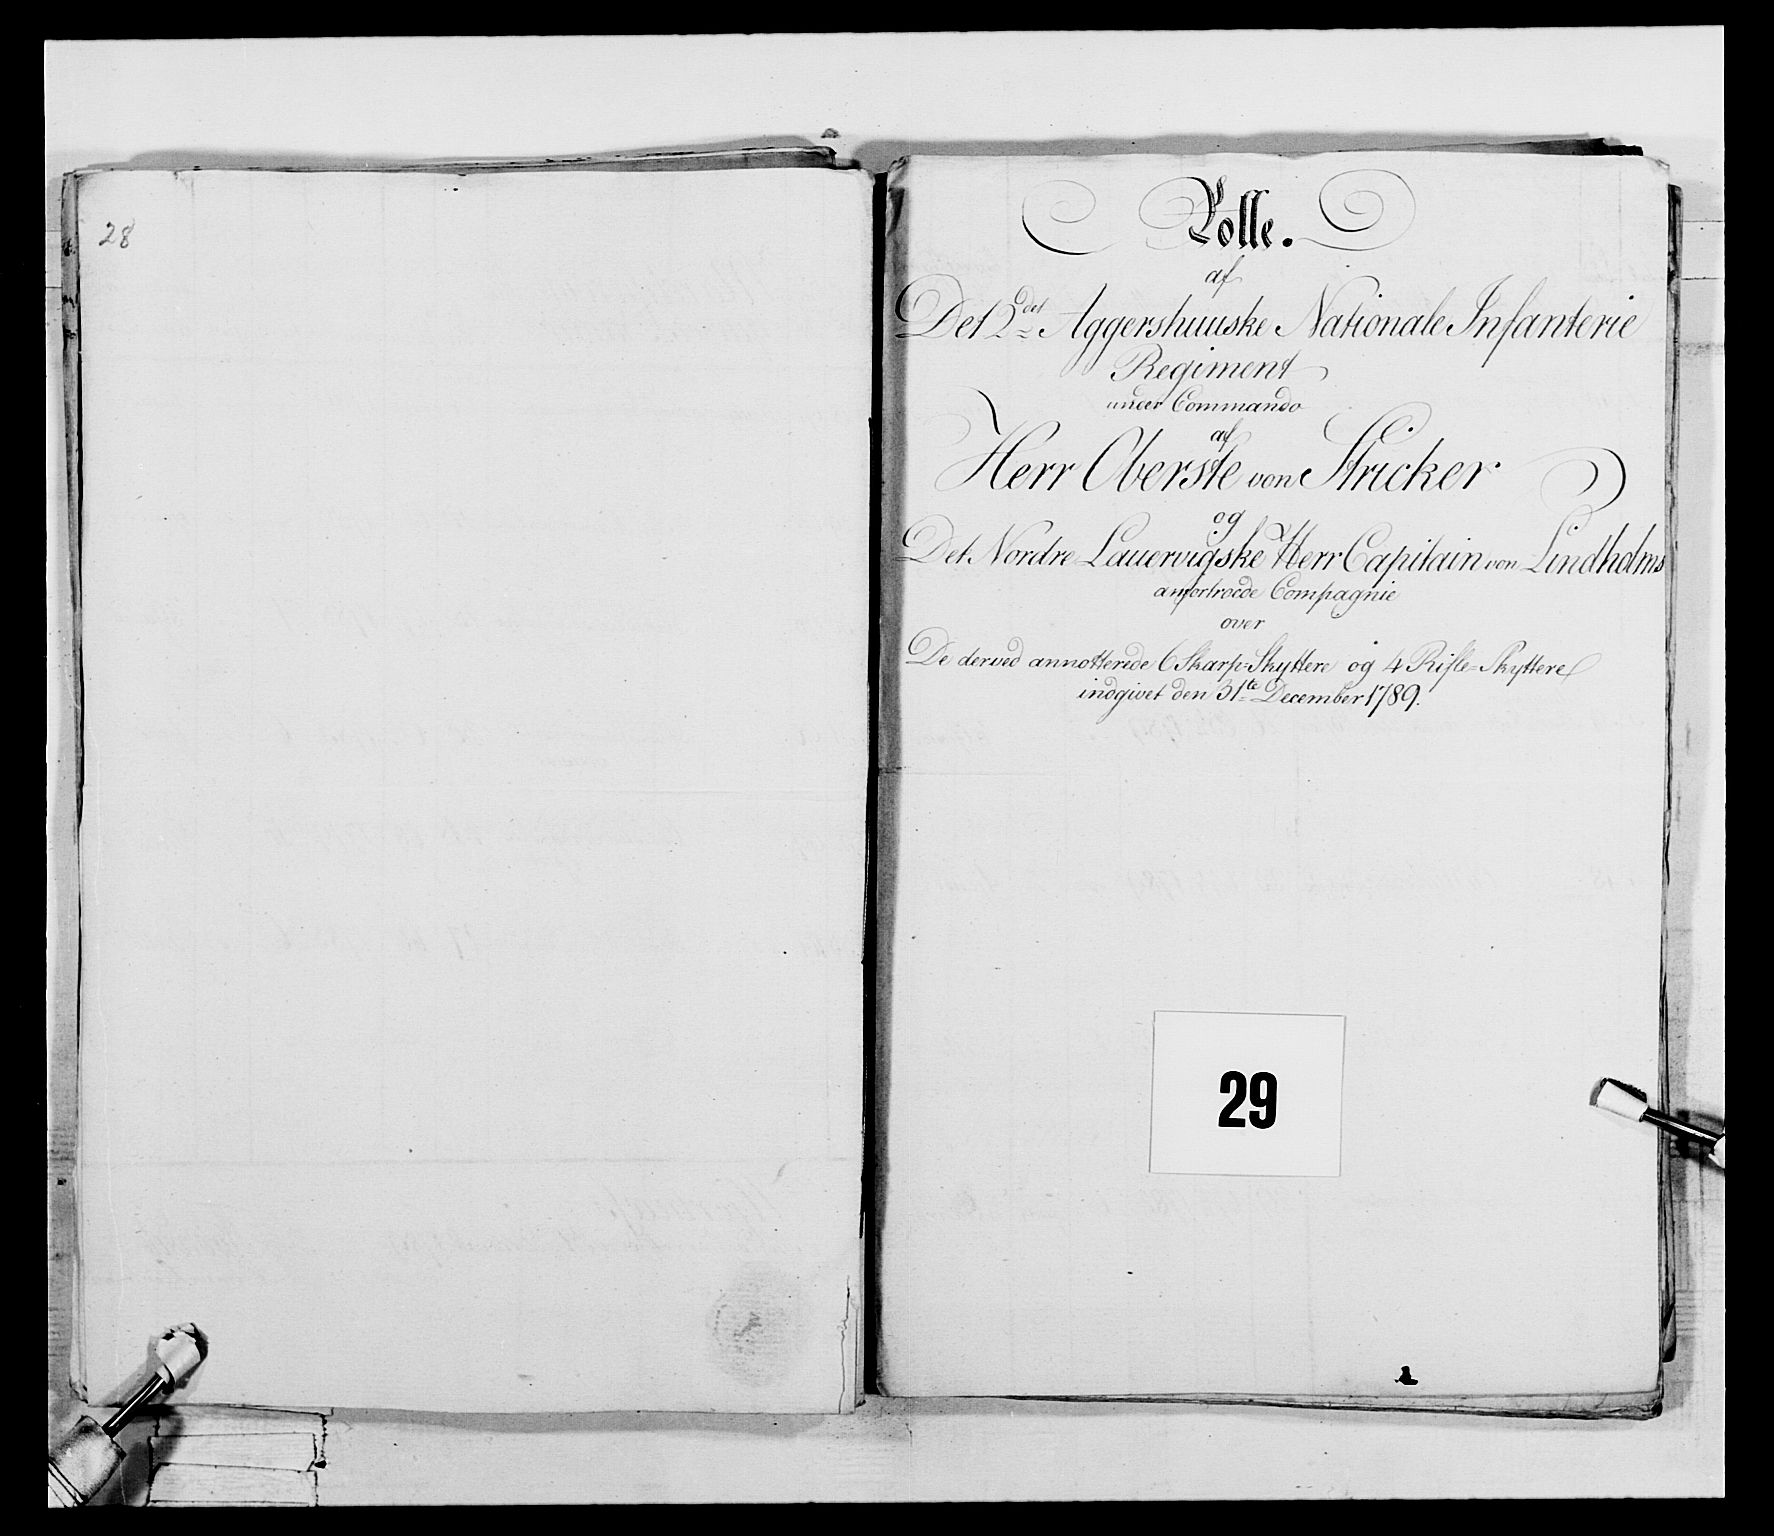 28
Rolle.
af
Det 2det Aggershuuske Nationale Infanterie
Regiment
under Commando
af
Herr Oberste von Stricker
og
Det Nordre Lauervigske Herr Capitain von Lindholms
anfortroede Compagnie
over
De derved annotterede 6 Skarp-Skyttere og 4 Rifle-Skyttere
indgivet den 31te December 1789.
29